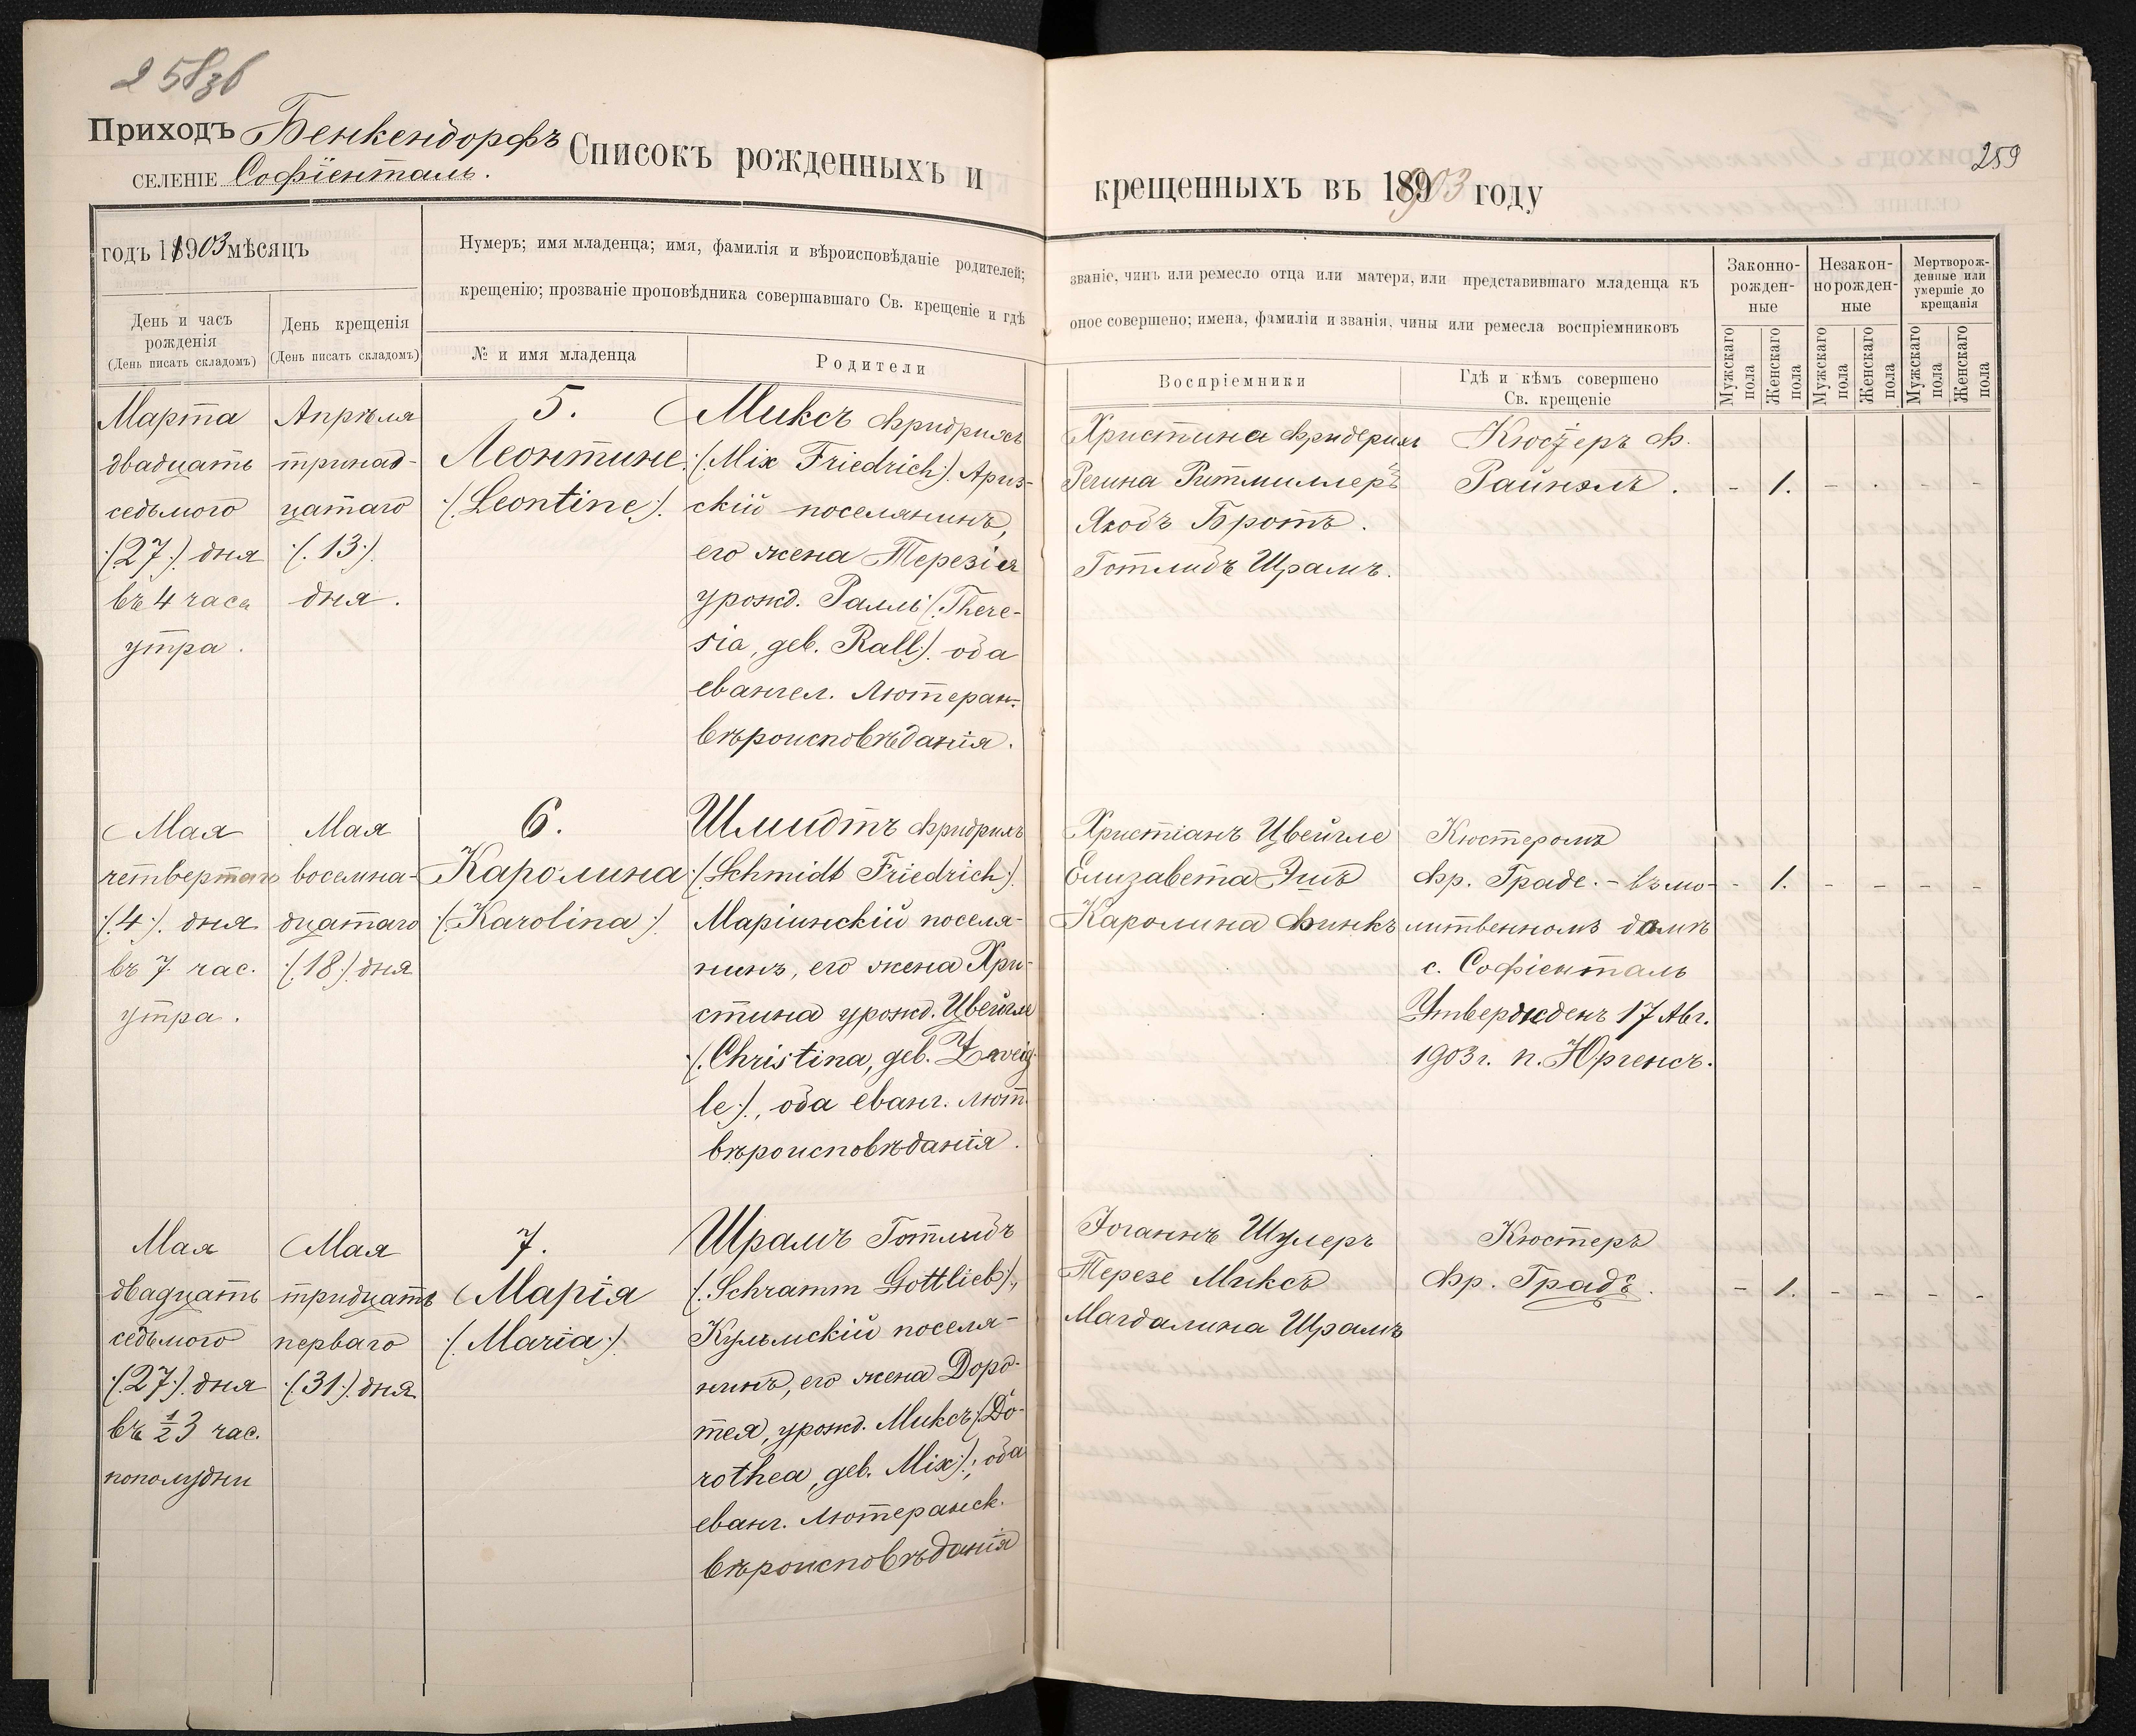 258зв
Приходъ Бенкендорфъ
селеніе Софіенталь.
Списокъ рожденныхъ и
крещенныхъ въ 1903 году
259
годъ 1903 мѣсяцъ
День и часъ
рожденія
(День писать складомъ)
День крещенія
(День писать складомъ)
Нумеръ; имя младенца; имя, фамилія и вѣроисповѣданіе родителей;
крещенію; прозваніе проповѣдника совершавшаго Св. крещеніе и гдѣ
№ и имя младенца
Родители
званіе, чинъ или ремесло отца или матери, или представившаго младенца къ
оное совершено; имена, фамиліи и званія, чины или ремесла воспріемниковъ
Воспріемники
Гдѣ и кѣмъ совершено
Св. крещеніе
Законно-
рожден-
ные
Незакон-
норожден-
ные
Мертворож-
денные или
умершіе до
крещанія
Мужскаго
пола
Женскаго
пола
Мужскаго
пола
Женскаго
пола
Мужскаго
пола
Женскаго
пола
Марта
двадцать
седьмого
(27) дня
въ 4 часа
утра.
Апрѣля
тринад-
цатаго
(13)
дня.
5.
Леонтине
(Leontine).
Миксъ Фридрихъ
(Mix Friedrich). Ариз-
скій поселянинъ,
его жена Терезія
урожд. Ралль (There-
sia, geb. Rall). оба
евангел. Лютеран.
вѣроисповѣданія.
Христина Фридерихъ
Регина Ритмиллеръ
Якобъ Бротъ.
Готлибъ Шрамъ.
Кюстеръ Ф.
Райнэлъ.
- 1. - . - -
Мая
четвертаго
(4). дня
въ 7 час.
утра.
Мая
восемна-
дцатаго
(18) дня
6.
Каролина
(Karolina)
Шмидтъ Фридрихъ
(Schmidt Friedrich)
Маріинскій поселя-
нинъ, его жена Хри-
стина урожд. Цвейгле
(Christina, geb. Zweig-
le)., оба еванг. лют.
вѣроисповѣданія.
Христіанъ Цвейгле
Елизавета Эшъ
Каролина Финкъ
Кюстеромъ
Фр. Граде. - въ мо-
литвенномъ домѣ
с. Софіенталь
Утвержденъ 17 Авг.
1903 г. п. Юргенсъ.
- 1. - - - -
Мая
двадцать
седьмого
(27). дня
въ 1/2 3 час.
пополудни
Мая
тридцать
перваго
(31). дня
7.
Марія
(Maria)
Шрамъ Готлибъ
(Schramm Gottlieb),
Кульмскій поселя-
нинъ, его жена Доро-
тея, урожд. Миксъ (Do-
rothea, geb. Mix); оба
еванг. Лютеранск.
вѣроисповѣданія
Іоганнъ Шулеръ
Терезе Миксъ
Магдалина Шрамъ
Кюстеръ
Фр. Градъ.
- 1. - - - -